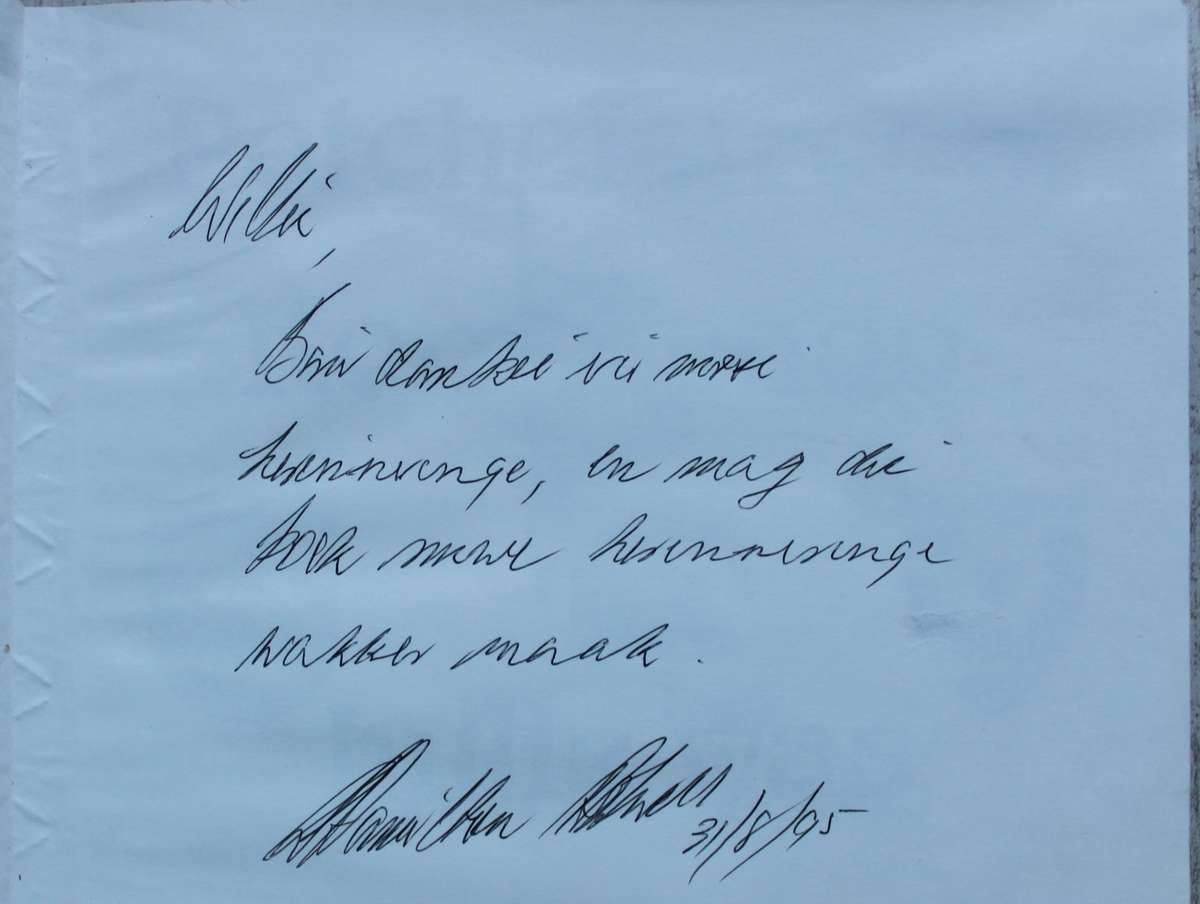 Willie,
Baie dankie vir mooi
herinneringe, en mag die
boek meer herinneringe
wakker maak.
Hamilton 31/8/95